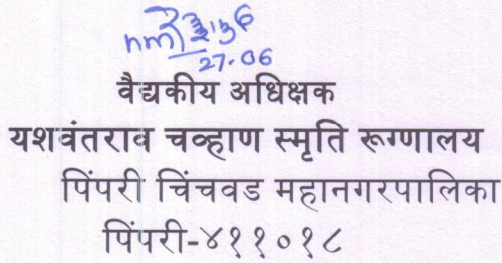 27.06
वैद्यकीय अधिक्षक
यशवंतराव चव्हाण स्मृति रूग्णालय
पिंपरी चिंचवड महानगरपालिका
पिंपरी-४११०१८